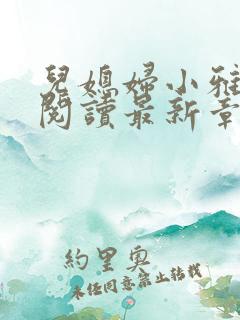 兒媳婦小雅
閱讀最新章
約里奧
未經同意禁止轉載